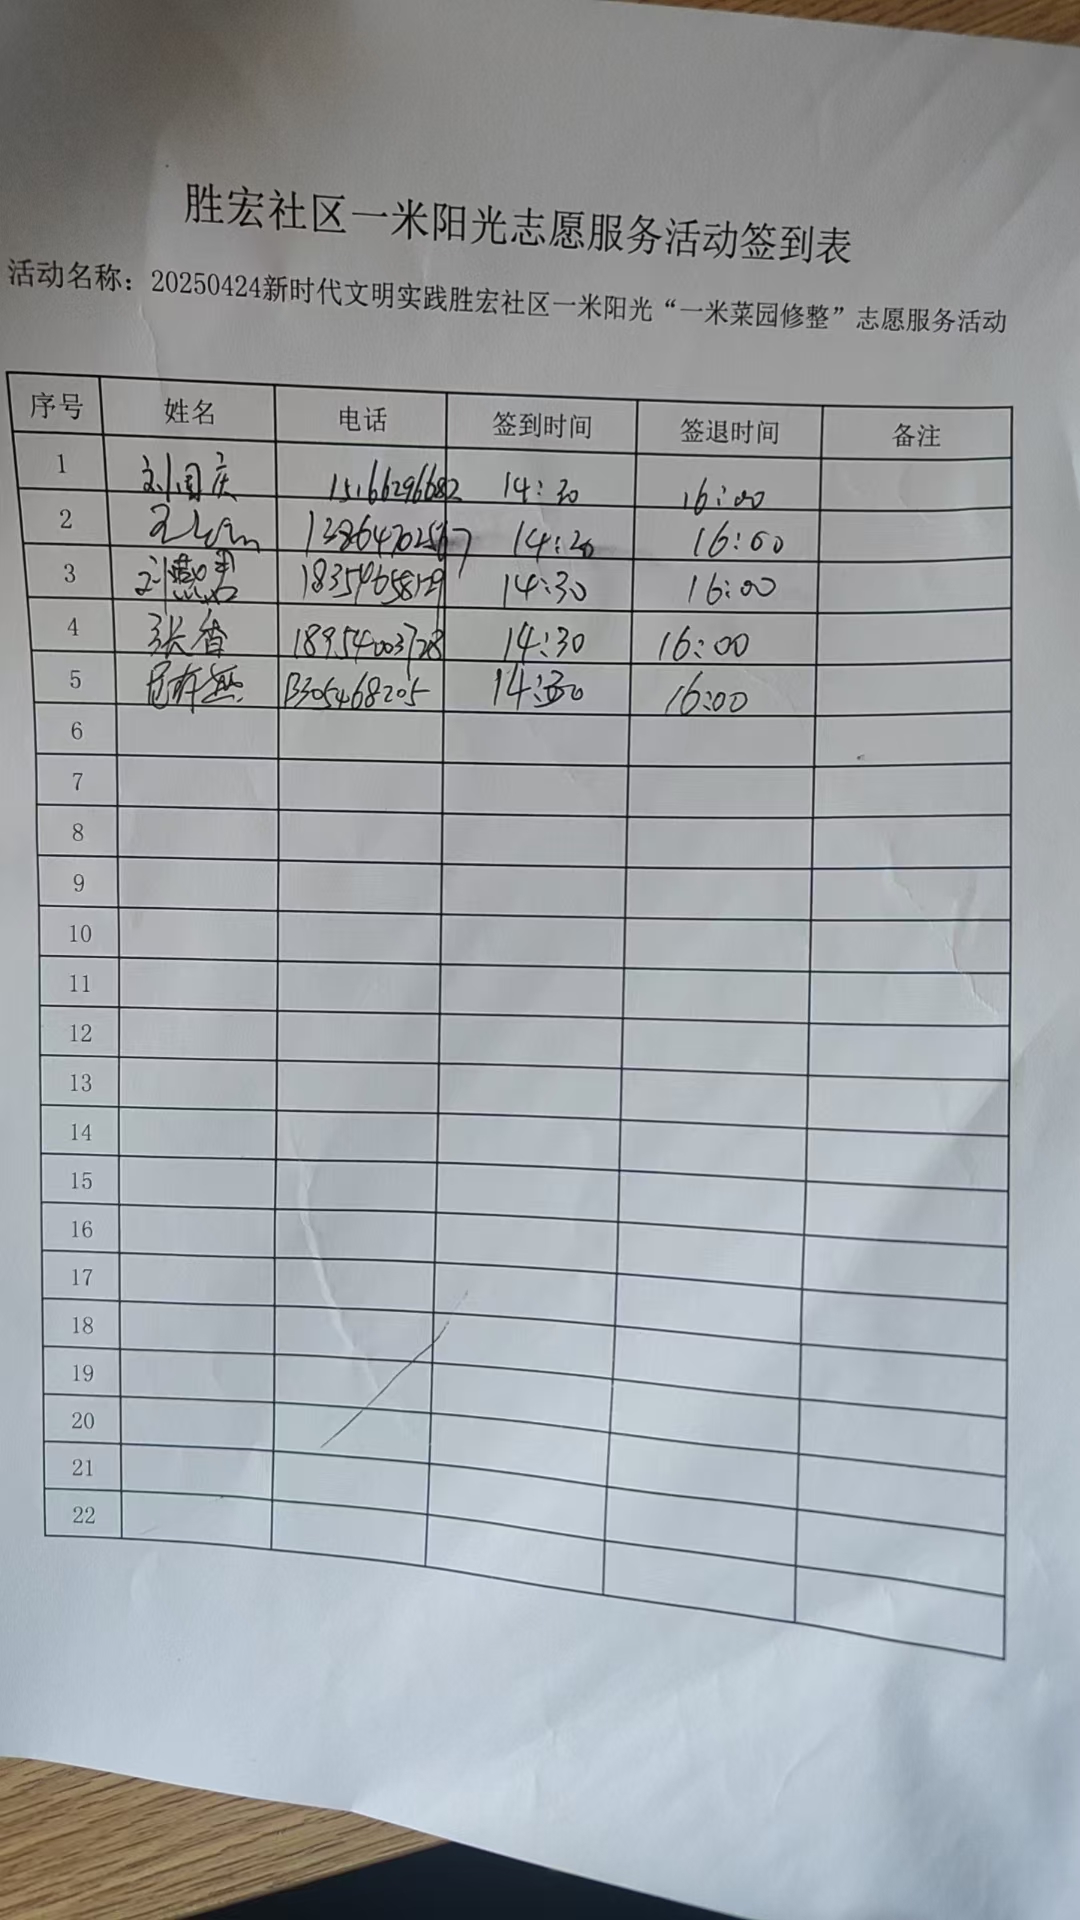 胜宏社区一米阳光志愿服务活动签到表
活动名称：20250424新时代文明实践胜宏社区一米阳光“一米菜园修整”志愿服务活动
序号 姓名 电话 签到时间 签退时间 备注
1 刘国庆 15166296682 14:30 16:00
2 14:20 16:00
3 刘慧君 14:30 16:00
4 张香 18954003728 14:30 16:00
5 13305468205 14:30 16:00
6
7
8
9
10
11
12
13
14
15
16
17
18
19
20
21
22